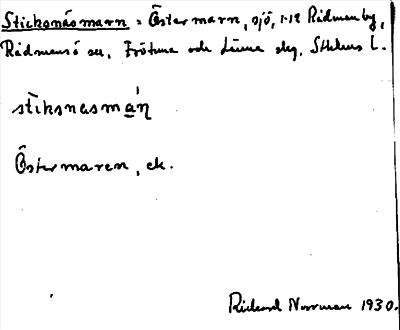 Sticksnäsmarn = Östermarn, sjö, 1-12 Rådmanby,
Rådmansö sn, Frötuna och Länna skg, Sthlms l.
stìksnasmáṇ
Östermaren, ek.
Rickard Norrman 1930.